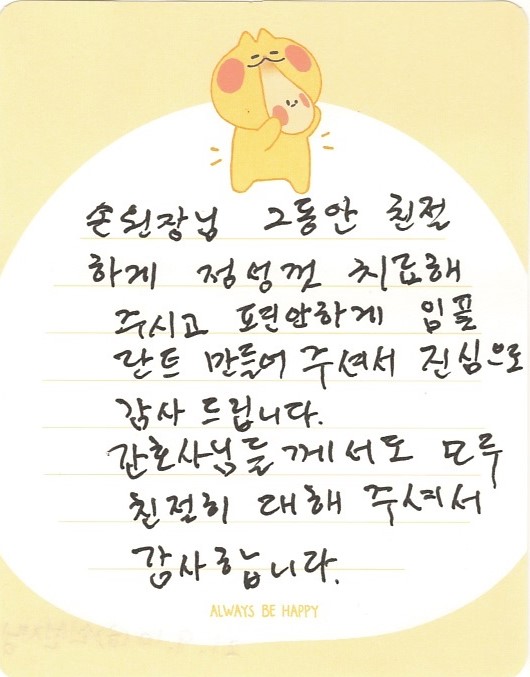 손원장님 그동안 친절
하게 정성껏 치료해
주시고 편안하게 임플
란트 만들어 주셔서 진심으로
감사 드립니다.
간호사님들 께서도 모두
친절히 대해 주셔서
감사합니다.
ALWAYS BE HAPPY